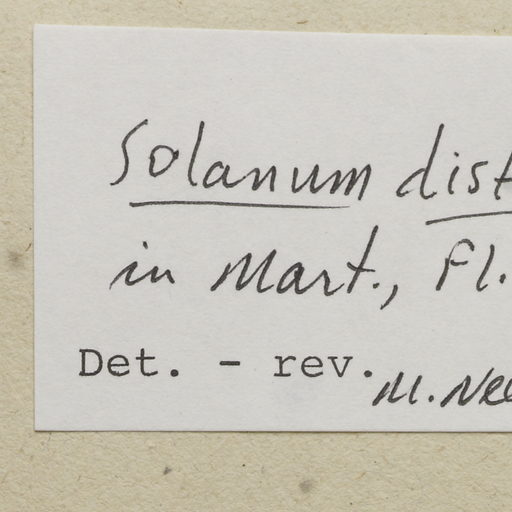 Solanum dist
in Mart., Fl.
Det. - rev. M. Nee